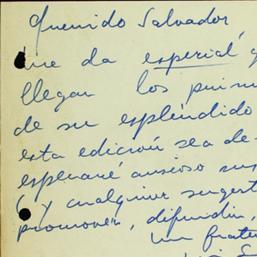 Querido Salvador
me da especial
llegan los prim
de su espléndido
esta edición sea de
esperaré ansioso
(y cualquier sugest
promover, difundir,
un frate